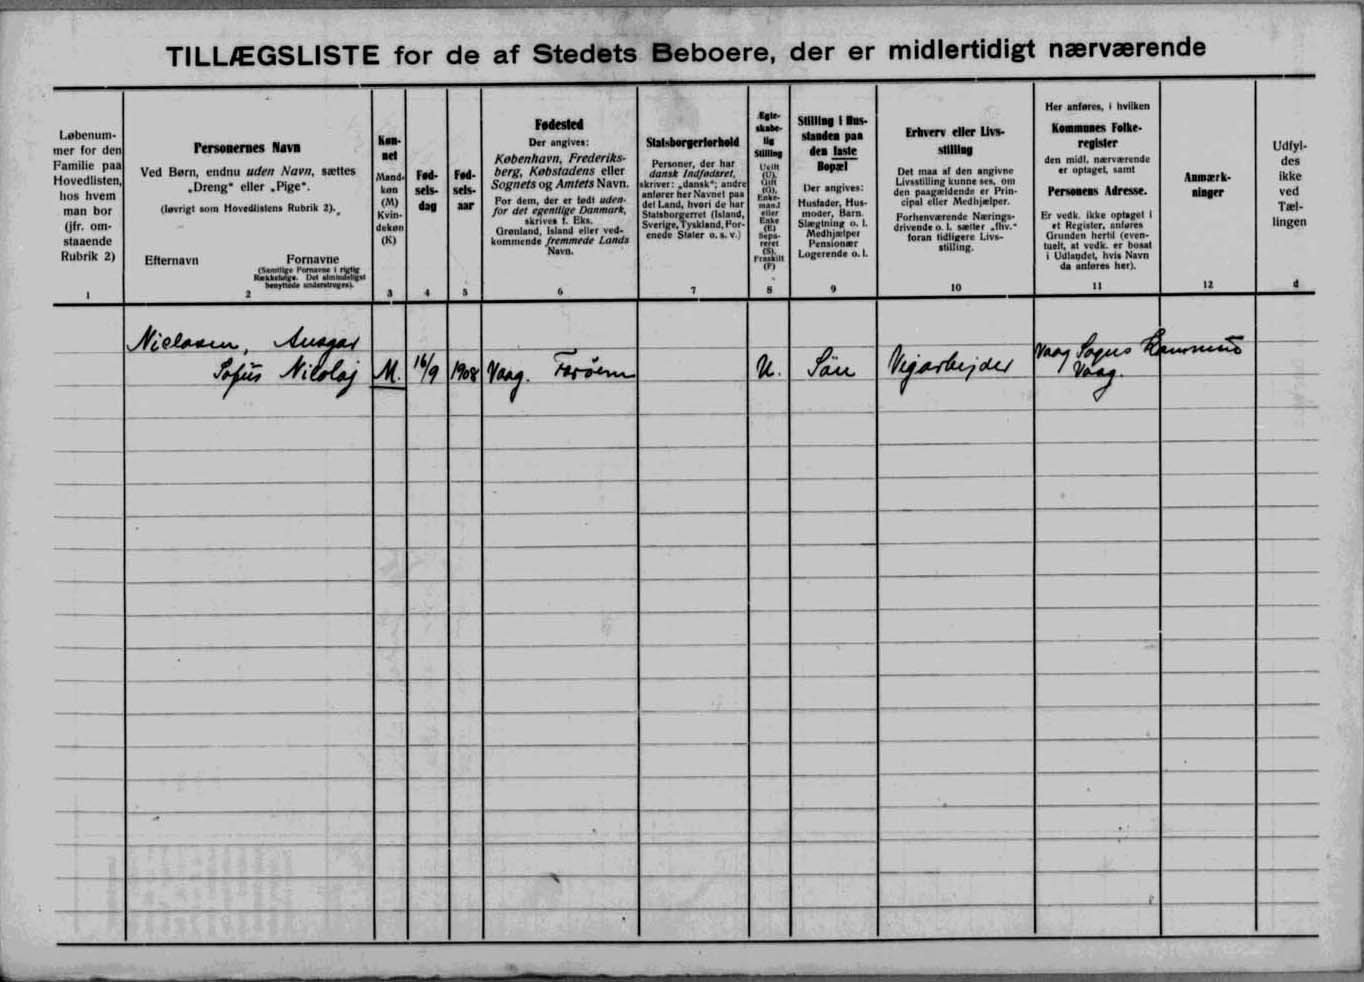 TILLÆGSLISTE for de af Stedets Beboere, der er midlertidigt nærværende
Løbenum-
mer for den
Familie paa
Hovedlisten,
hos hvem
man bor
(jfr. om-
staaende
Rubrik 2)
1
Personernes Navn
Ved Børn, endnu uden Navn, sættes
„Dreng“ eller „Pige“.
(Iøvrigt som Hovedlistens Rubrik 2).
Efternavn Fornavne
(Samtlige Fornavne i rigtig
Rækkefølge. Det almindeligst
benyttede understreges).
2
Køn-
net
Mand-
køn
(M)
Kvin-
dekøn
(K)
3
Fød-
sels-
dag
4
Fød-
sels-
aar
5
Fødested
Der angives:
København, Frederiks-
berg, Købstadens eller
Sognets og Amtets Navn.
For dem, der er født uden-
for det egentlige Danmark,
skrives f. Eks.
Grønland, Island eller ved-
kommende fremmede Lands
Navn.
6
Statsborgerforhold
Personer, der har
dansk Indfødsret,
skriver: „dansk“; andre
anfører her Navnet paa
det Land, hvori de har
Statsborgerret (Island,
Sverige, Tyskland, For-
enede Stater o. s. v.)
7
Ægte-
skabe-
lig
Stilling
Ugift
(U),
Gift
(G),
Enke-
mand
eller
Enke
(E)
Sepa-
reret
(S),
Fraskilt
(F)
8
Stilling i Hus-
standen paa
den faste
Bopæl
Der angives:
Husfader, Hus-
moder, Barn,
Slægtning o. l.
Medhjælper
Pensionær
Logerende o. l.
9
Erhverv eller Livs-
stilling
Det maa af den angivne
Livsstilling kunne ses, om
den paagældende er Prin-
cipal eller Medhjælper.
Forhenværende Nærings-
drivende o. l. sætter „fhv.“
foran tidligere Livs-
stilling.
10
Her anføres, i hvilken
Kommunes Folke-
register
den midl. nærværende
er optaget, samt
Personens Adresse.
Er vedk. ikke optaget i
et Register, anføres
Grunden hertil (even-
tuelt, at vedk. er bosat
i Udlandet, hvis Navn
da anføres her).
11
Anmærk-
ninger
12
Udfyl-
des
ikke
ved
Tæl-
lingen
d
Nielsen, Ansgar
Sofus Nikolaj M. 16/9 1908 Vaag. Færøerne U. Søn Vejarbejder
Vaag Sogns Kommune
Vaag.